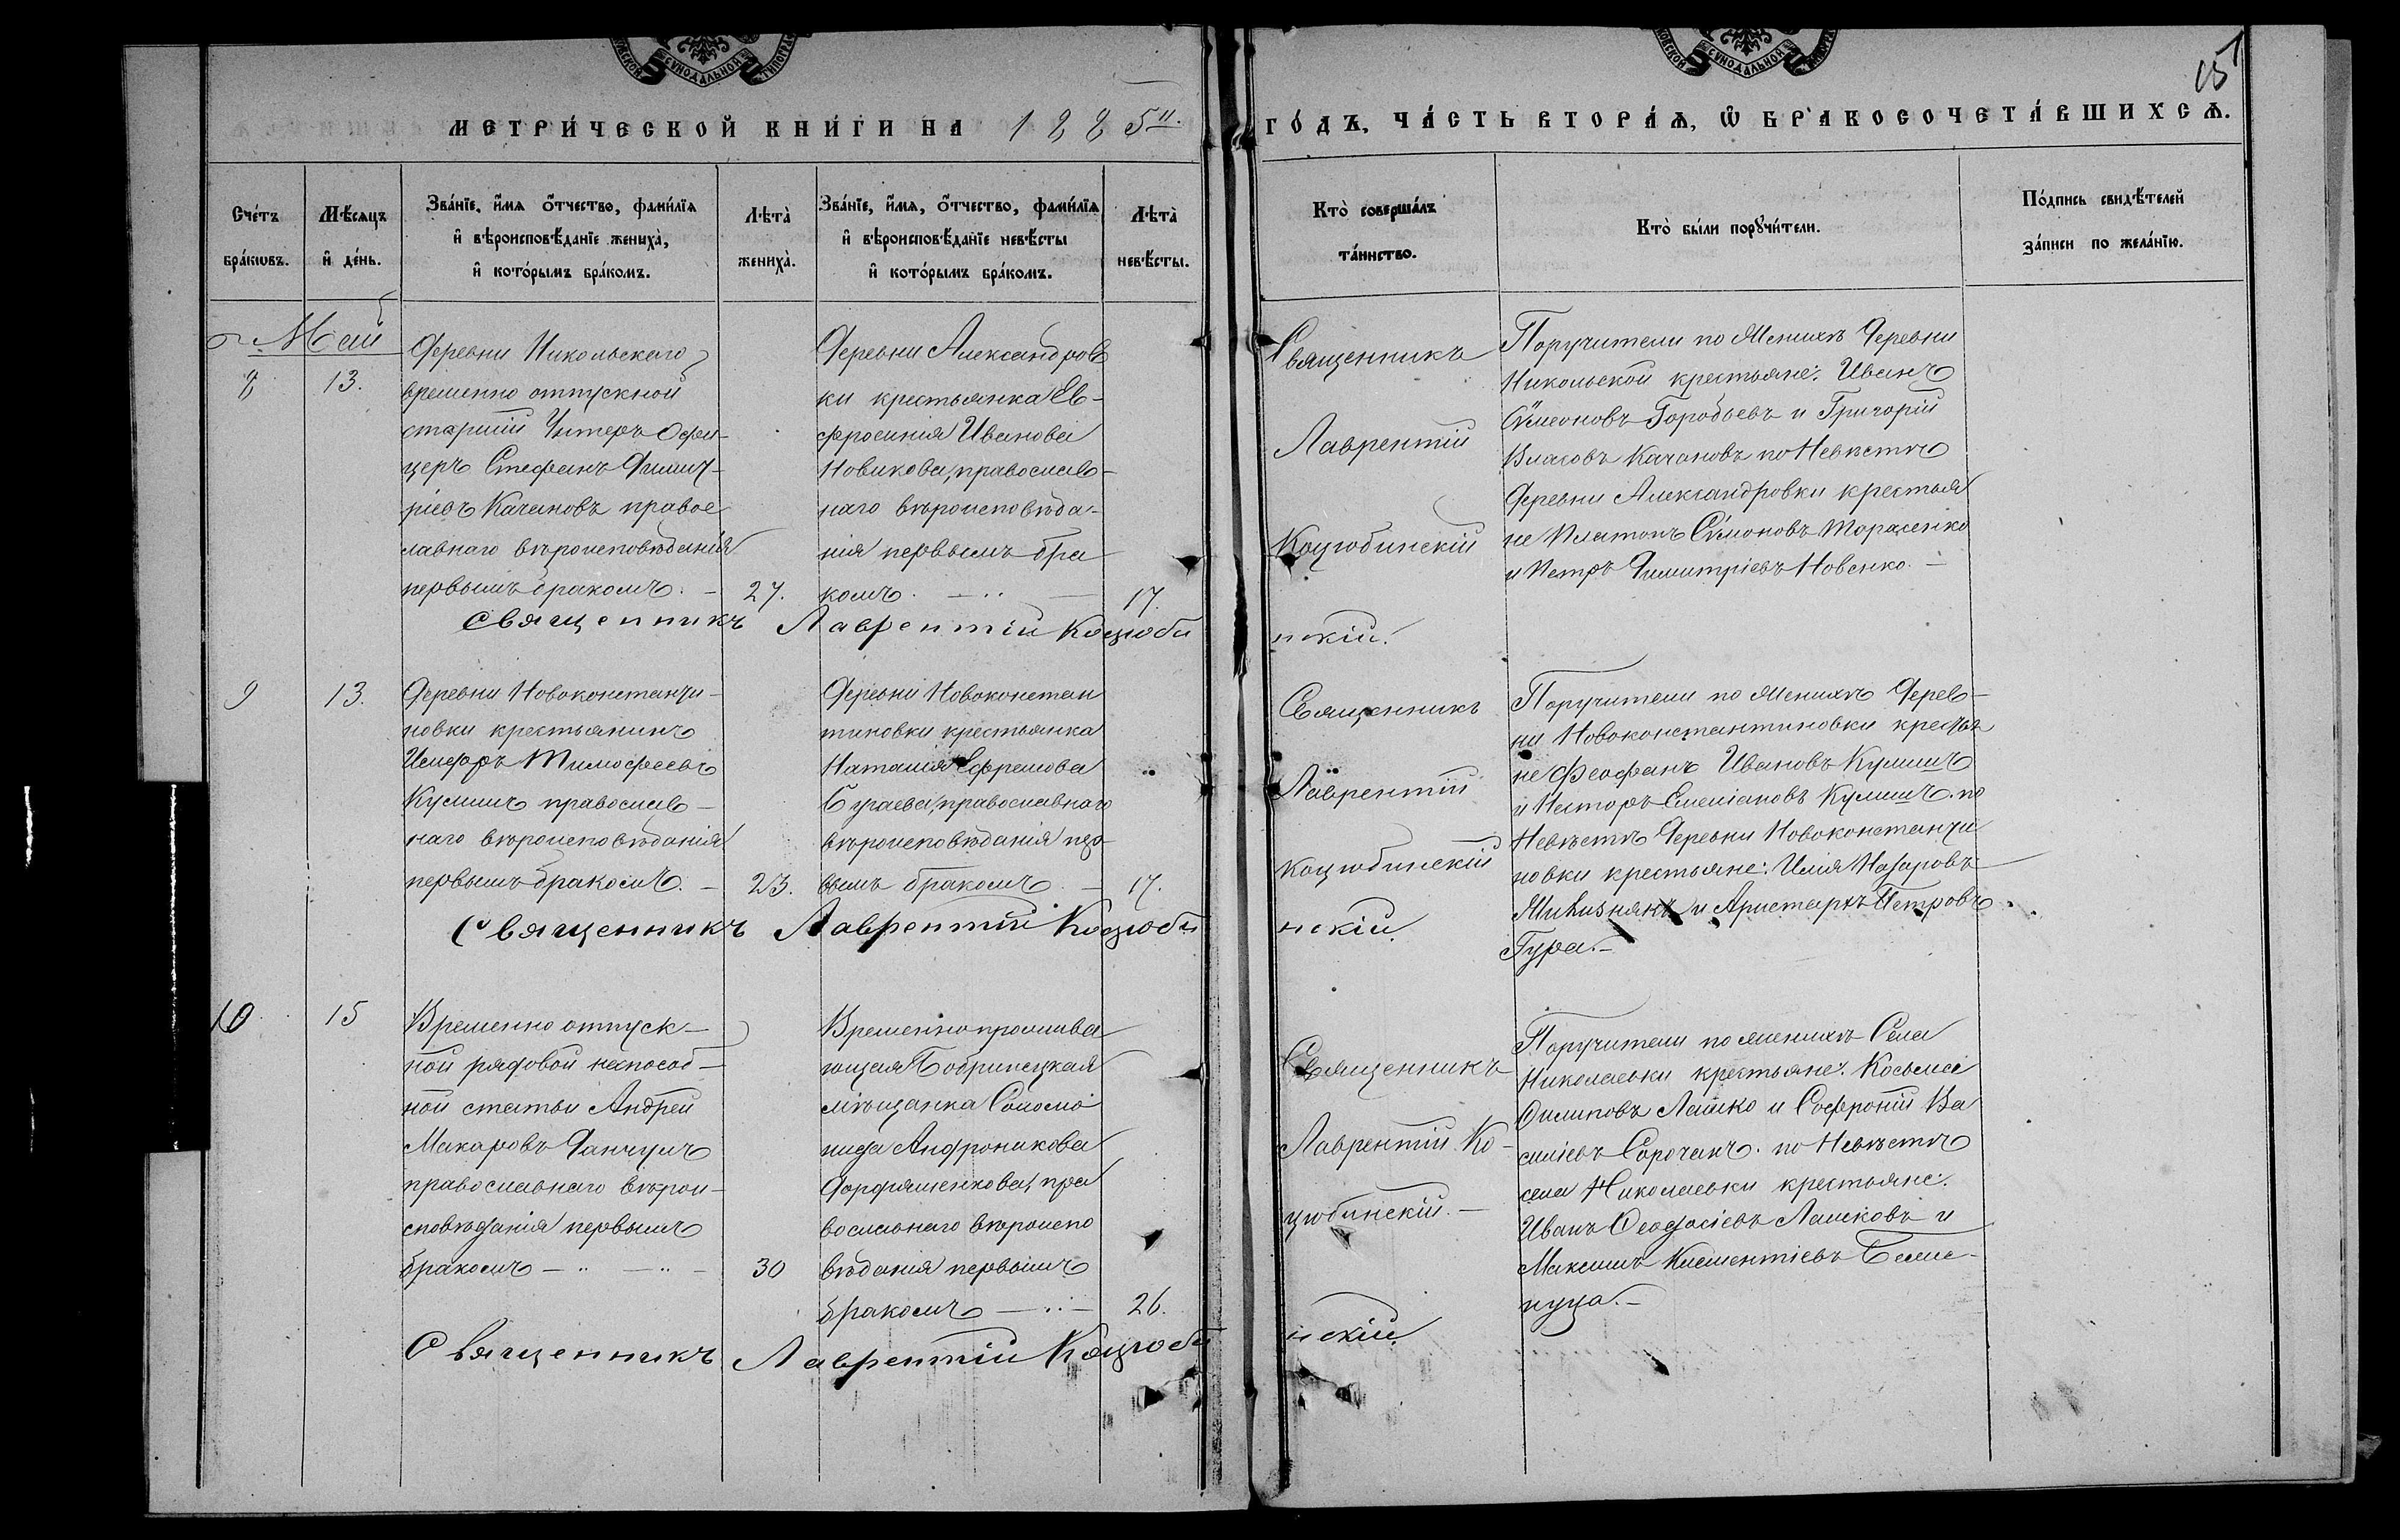 МОСКОВСКОЙ СѴНОДАЛЬНОЙ ТИПОГРАФ
МОСКОВСКОЙ СѴНОДАЛЬНОЙ ТИПОГРАФ
151
МЕТРИ́ЧЕСКОЙ КНИ́ГИ НА 1885й.
ГО́ДЪ, ЧА́СТЬ ВТОРА́Ѧ, Ѡ БРАКОСОЧЕТА́ВШИХСѦ.
Сче́тъ бра́ковъ.
Мѣ́сяцъ и де́нь.
Зва́нїе, и́мя о́тчество, фами́лїя
и вѣроисповѣ́данїе жениха̀,
и кото́рымъ бра́комъ.
Лѣта̀ жениха̀.
Зва́нїе, и́мя, о́тчество, фами́лїя
и вѣроисповѣ́данїе невѣ́сты
и кото́рымъ бра́комъ.
Лѣта̀ невѣ́сты.
Кто̀ соверша́лъ
та́инство.
Кто̀ бы́ли порꙋчи́тели.
По́дпись свидѣ́телей
за́писи по жела́нїю.
Май
8
13.
Деревни Никольскаго
временно отпускной
старшій Унтеръ Офи-
церъ Стефанъ Димит-
ріевъ Качановъ правос
лавнаго вѣроисповѣданія
первымъ бракомъ. —
27.
Деревни Александров
ки крестьянка Ев-
фросинія Иванова
Новикова, православ-
наго вѣроисповѣда-
нія первымъ бра
комъ. —
17.
Священникъ
Лаврентій
Коцюбинскій
Поручители по Женихѣ Деревни
Никольской крестьяне: Иванъ
Сѵмеоновъ Воробьевъ и Григорій
Власовъ Качановъ по Невѣстѣ
Деревни Александровки крестья
не Платонъ Сѵмоновъ Тарасенко
и Петръ Димитріевъ Новенко. —
Священникъ Лаврентій Коцюби
нскій.
9
13.
Деревни Новоконстанти-
новки крестьянинъ
Тимофеевъ
Кулишъ православ-
наго вѣроисповѣданія
первымъ бракомъ. —
23.
Деревни Новоконстан
тиновки крестьянка
Наталія Ефремова
Бугаева, православнаго
вѣроисповѣданія пер-
вымъ бракомъ —
17.
Священникъ
Лаврентій
Коцюбинскій
Поручители по Женихѣ Дерев-
ни Новоконстантиновки крестья
не Феофанъ Ивановъ Кулишъ
и Несторъ Емеліановъ Кулишъ. по
Невѣстѣ Деревни Новоконстанти
новки крестьяне: Илія Назаровъ
и Аристархъ Петровъ
Гура. —
Священникъ Лаврентій Коцюби
нскій.
10
15
Временно отпуск-
ной рядовой неспособ-
ной статьи Андрей
Макаровъ Танчукъ
православнаго вѣрои-
сповѣданія первымъ
бракомъ —
30
Временно прожива
ющая Бобринецкая
мѣщанка Соломо
нида Андроникова
пра
вославнаго вѣроиспо
вѣданія первымъ
бракомъ —
26.
Священникъ
Лаврентій Ко-
цюбинскій. —
Поручители по женихѣ Села
Николаевки крестьяне: Косьма
Филиповъ Лашко и Софроній Ва
силіевъ Сорочанъ. по Невѣстѣ
села Николаевки крестьяне:
Иванъ Феодосіевъ Лашковъ и
Максимъ Климентіевъ
Священникъ Лаврентій Коцюби
нскій.